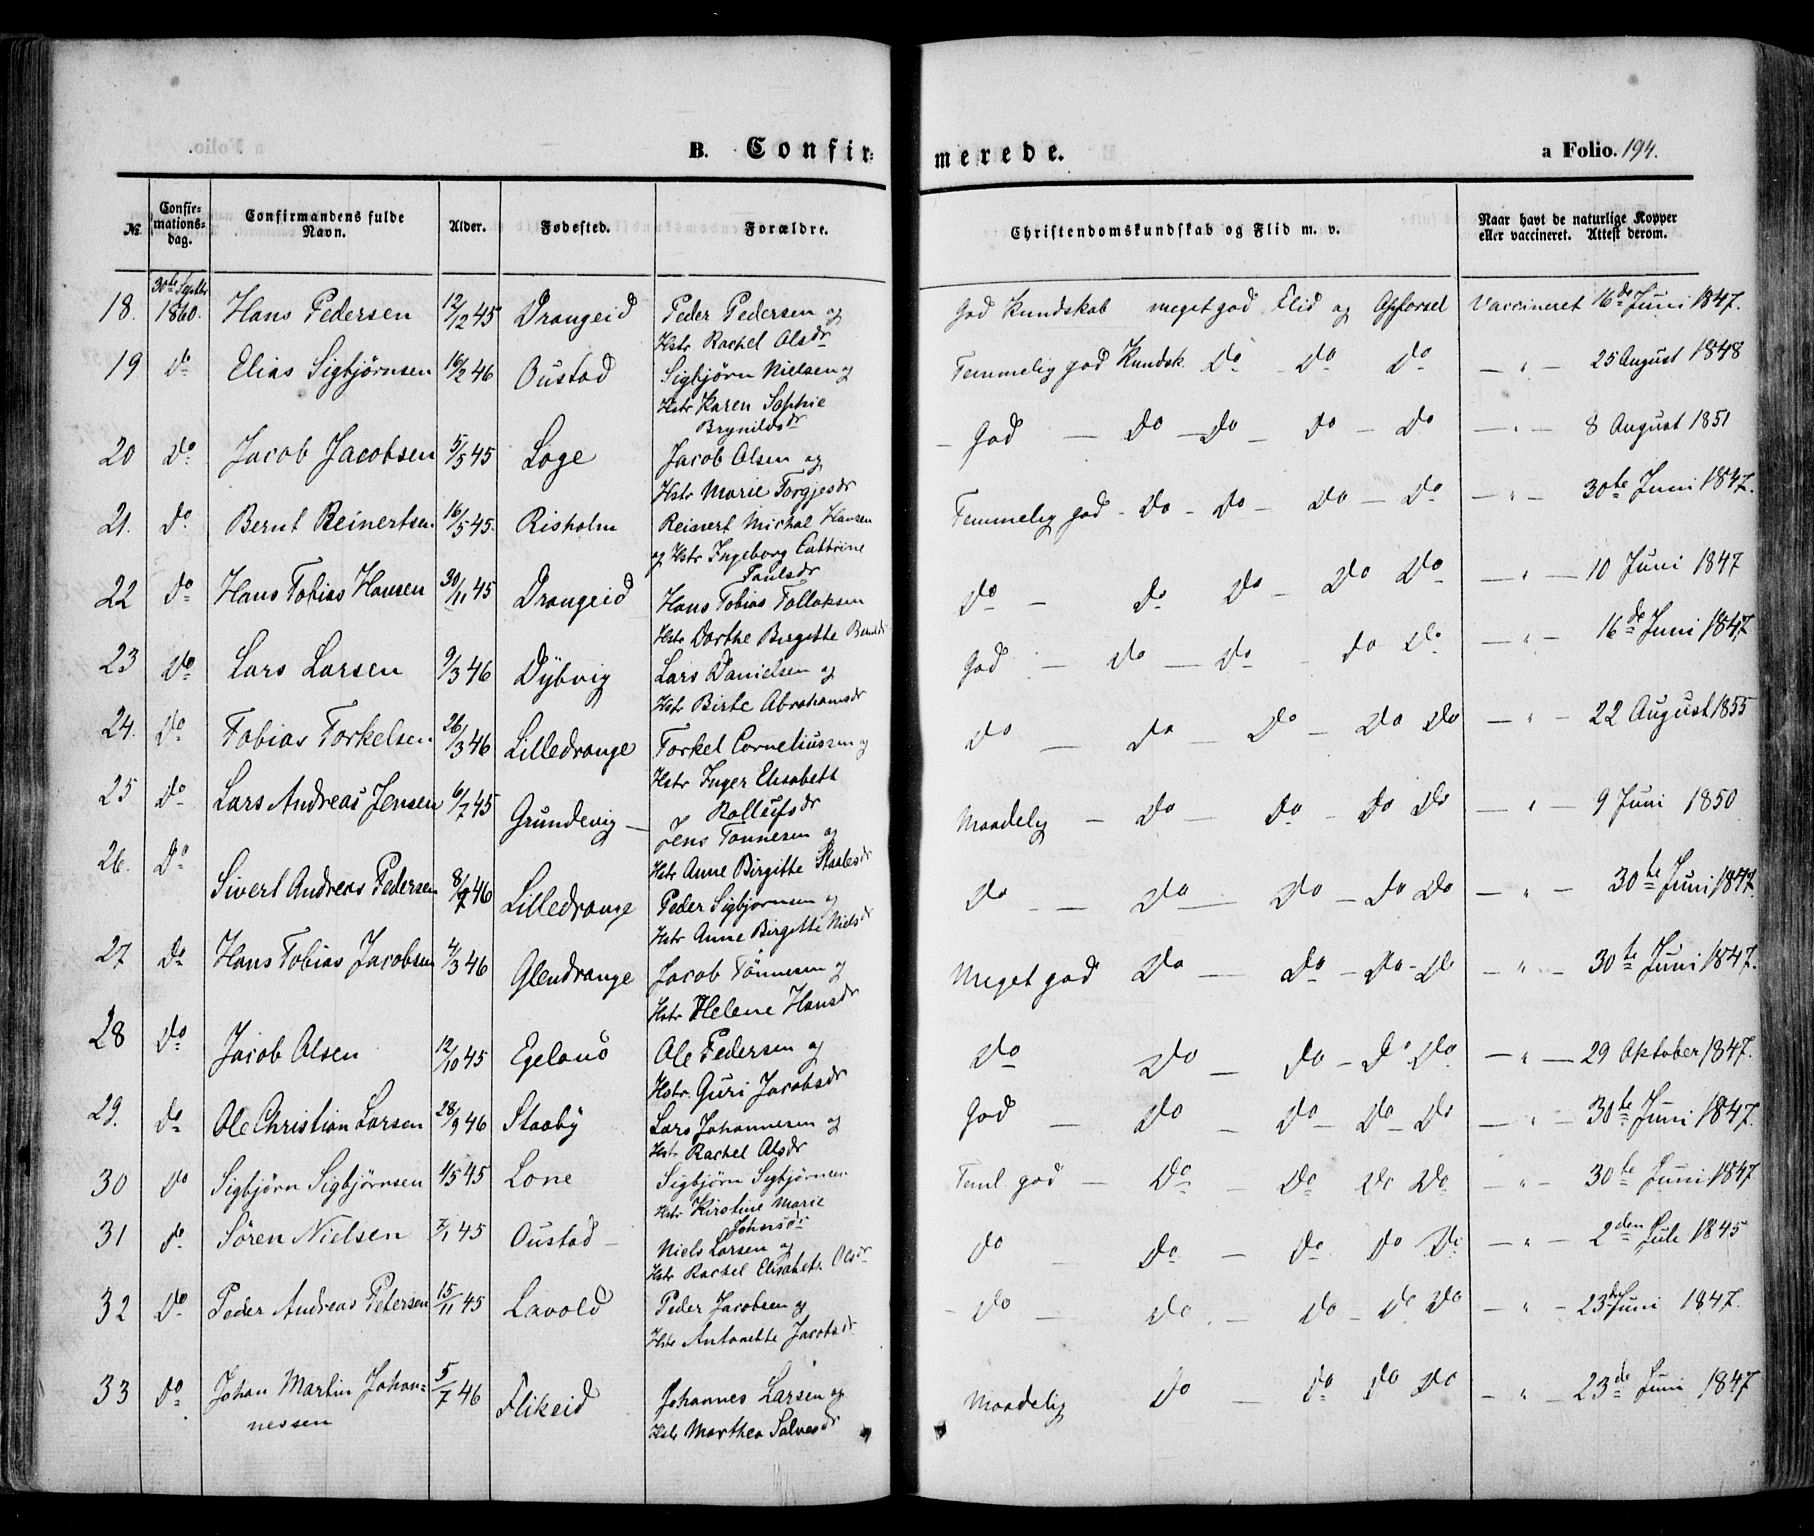 B. Confir-
merede.
a Folio. 194.
№
Confir-
mations-
dag.
Confirmandens fulde
Navn.
Alder.
Fødested.
Forældre.
Christendomskundskab og Flid m. v.
Naar havt de naturlige Kopper
eller vaccineret. Attest derom.
30te Septbr
18. 1860. Hans Pedersen 12/12 45 Drangeid Peder Pedersen og God Kundskab meget god Flid og Opførsel Vaccineret 16de Juni 1847.
Hstr Rachel Olsdr
19 Do Elias Sigbjørnsen 16/2 46 Oustad Sigbjørn Nielsen og Temmelig god Kundsk. Do Do Do — " — 25 August 1848
Hstr Karen Sophie
Brynildsdr
20 Do Jacob Jacobsen 5/5 45 Loge Jacob Olsen og - God — Do — Do — Do — Do — " — 8 August 1851
Hstr Marie Torgjesdr
21. Do Bernt Reinertsen 16/5 45. Risholm Reinert Michal Hansen Temmelig god - Do - Do - Do - Do — " — 30te Juni 1847.
og Hstr Ingeborg Cathrine
Paulsdr
22 Do Hans Tobias Hansen 30/11 45 Drangeid Hans Tobias Tollaksen Do — Do Do — Do Do — " — 10 Juni 1847
Hstr Dorthe Birgitte
23 Do Lars Larsen 9/3 46 Dybvig Lars Danielsen og God — Do — Do - Do Do — " — 16de Juni 1847
Hstr Birte Abrahamsdr
24. Do Tobias Torkelsen 26/3 46 Lilledrange Torkel Corneliussen og Do — Do — Do — Do Do — " — 22 August 1855
Hstr Inger Elisabeth
Rollufsdr
25 Do Lars Andreas Jensen 6/7 45 Grundevig — Jens Tønnesen og Maadelig — Do — Do — Do Do — " — 9 Juni 1850
Hstr Anne Birgitte Staalesdr
26. Do Sivert Andreas Pedersen 8/7 46 Lilledrange Peder Sigbjørnsen og Do — Do — Do — Do Do — " — 30te Juni 1847.
Hstr Anne Birgitte Nielsdr
27 Do Hans Tobias Jacobsen 4/3 46 Glendrange Jacob Tønnesen og Meget god Do — Do — Do - Do — " — 30te Juni 1847.
Hstr Helene Hansdr
28 Do Jacob Olsen 12/10 45 Egeland Ole Pedersen og Do Do — Do — Do Do — " — 29 Oktober 1847.
Hstr. Guri Jacobsdr
29. Do Ole Christian Larsen 28/9 46 Staaby Lars Johannesen og God — Do — Do — Do — Do — " — 30te Juni 1847.
Hstr Rachel Olsdr
30 Do Sigbjørn Sigbjørnsen 1/5 45 Lone Sigbjørn Sigbjørnsen Teml. god — Do — Do Do Do — " — 30te Juni 1847
Hstr Kirstine Marie
Johnsdr
31 Do Søren Nielsen 7/1 45 Oustad — Niels Larsen og Do Do — Do Do Do — " — 2den Juli 1845
Hstr Rachel Elisabeth Olsdr
32 Do Peder Andreas Petersen 15/11 45 Lavold Peder Jacobsen og - Do — Do — Do — Do Do — " — 23de Juni 1847.
Hstr Antonette Jacobsdr
33 Do Johan Martin Johan- 5/7 46 Flikeid Johannes Larsen og Maadelig Do — Do Do Do — " — 23de Juni 1847
nessen Hstr Marthea Salvesdr